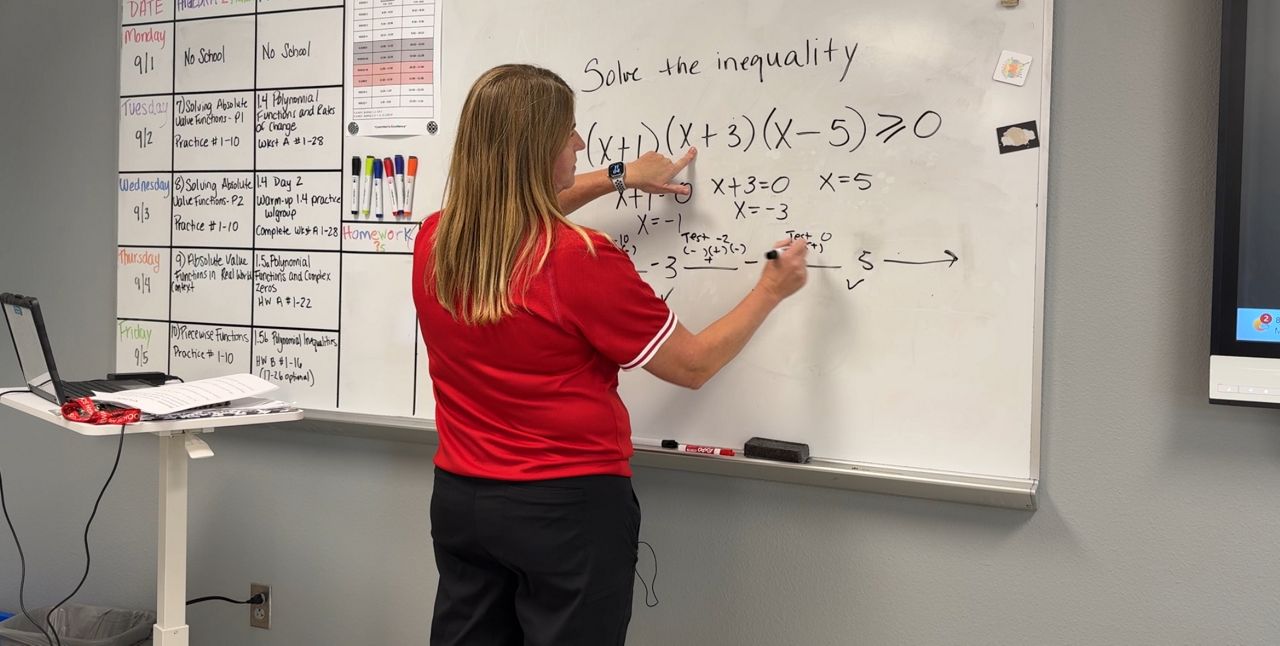 DATE
Monday
9/1
No School
No School
Tuesday
9/2
7) Solving Absolute
Value Functions - P1
Practice # 1-10
1.4 Polynomial
Functions and Rates
of Change
WKst A # 1-28
Wednesday
9/3
8) Solving Absolute
Value Functions - P2
Practice # 1-10
1.4 Day 2
Warm-up 1.4 practice
w/group
Complete WKst A 1-28
Thursday
9/4
9) Absolute Value
Functions in Real World
Context
1.5a Polynomial
Functions and Complex
Zeros
HW A # 1-22
Friday
9/5
10) Piecewise Functions
Practice # 1-10
1.5b Polynomial Inequalities
HW B # 1-16
(17-26 optional)
Homework
Solve the inequality
(x+1)(x+3)(x-5)≥0
x+3=0 x=5
x=-1 x=-3
Test -2 Test 0
(-)(+)(-)
-3 + - 5
EXPO
2